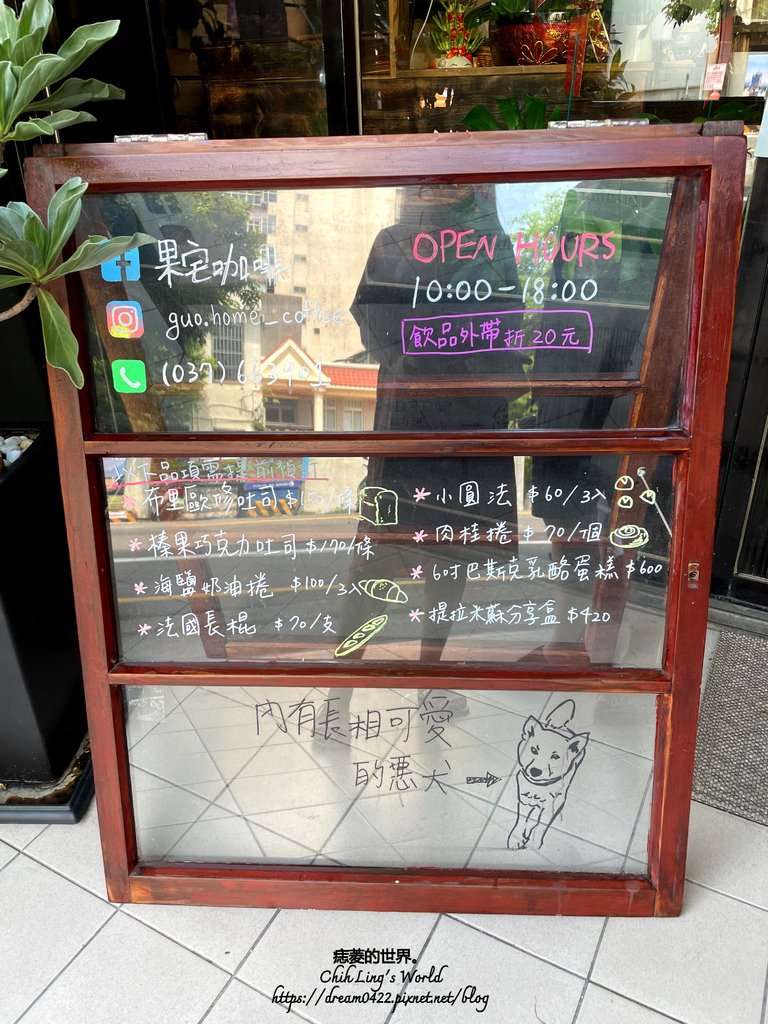 果宅咖啡
guo.home_coffee
(037) 663901
OPEN HOURS
10:00-18:00
飲品外帶折20元
以下品項需提前預訂
布里歐修吐司 $150/條
*榛果巧克力吐司 $170/條
*海鹽奶油捲 $100/3入
*法國長棍 $70/支
*小圓法 $60/3入
*肉桂捲 $70/個
*6吋巴斯克乳酪蛋糕 $600
*提拉米蘇分享盒 $420
內有長相可愛
的惡犬→
痞菱的世界。
ChihLing's World
https://dream0422.pixnet.net/blog